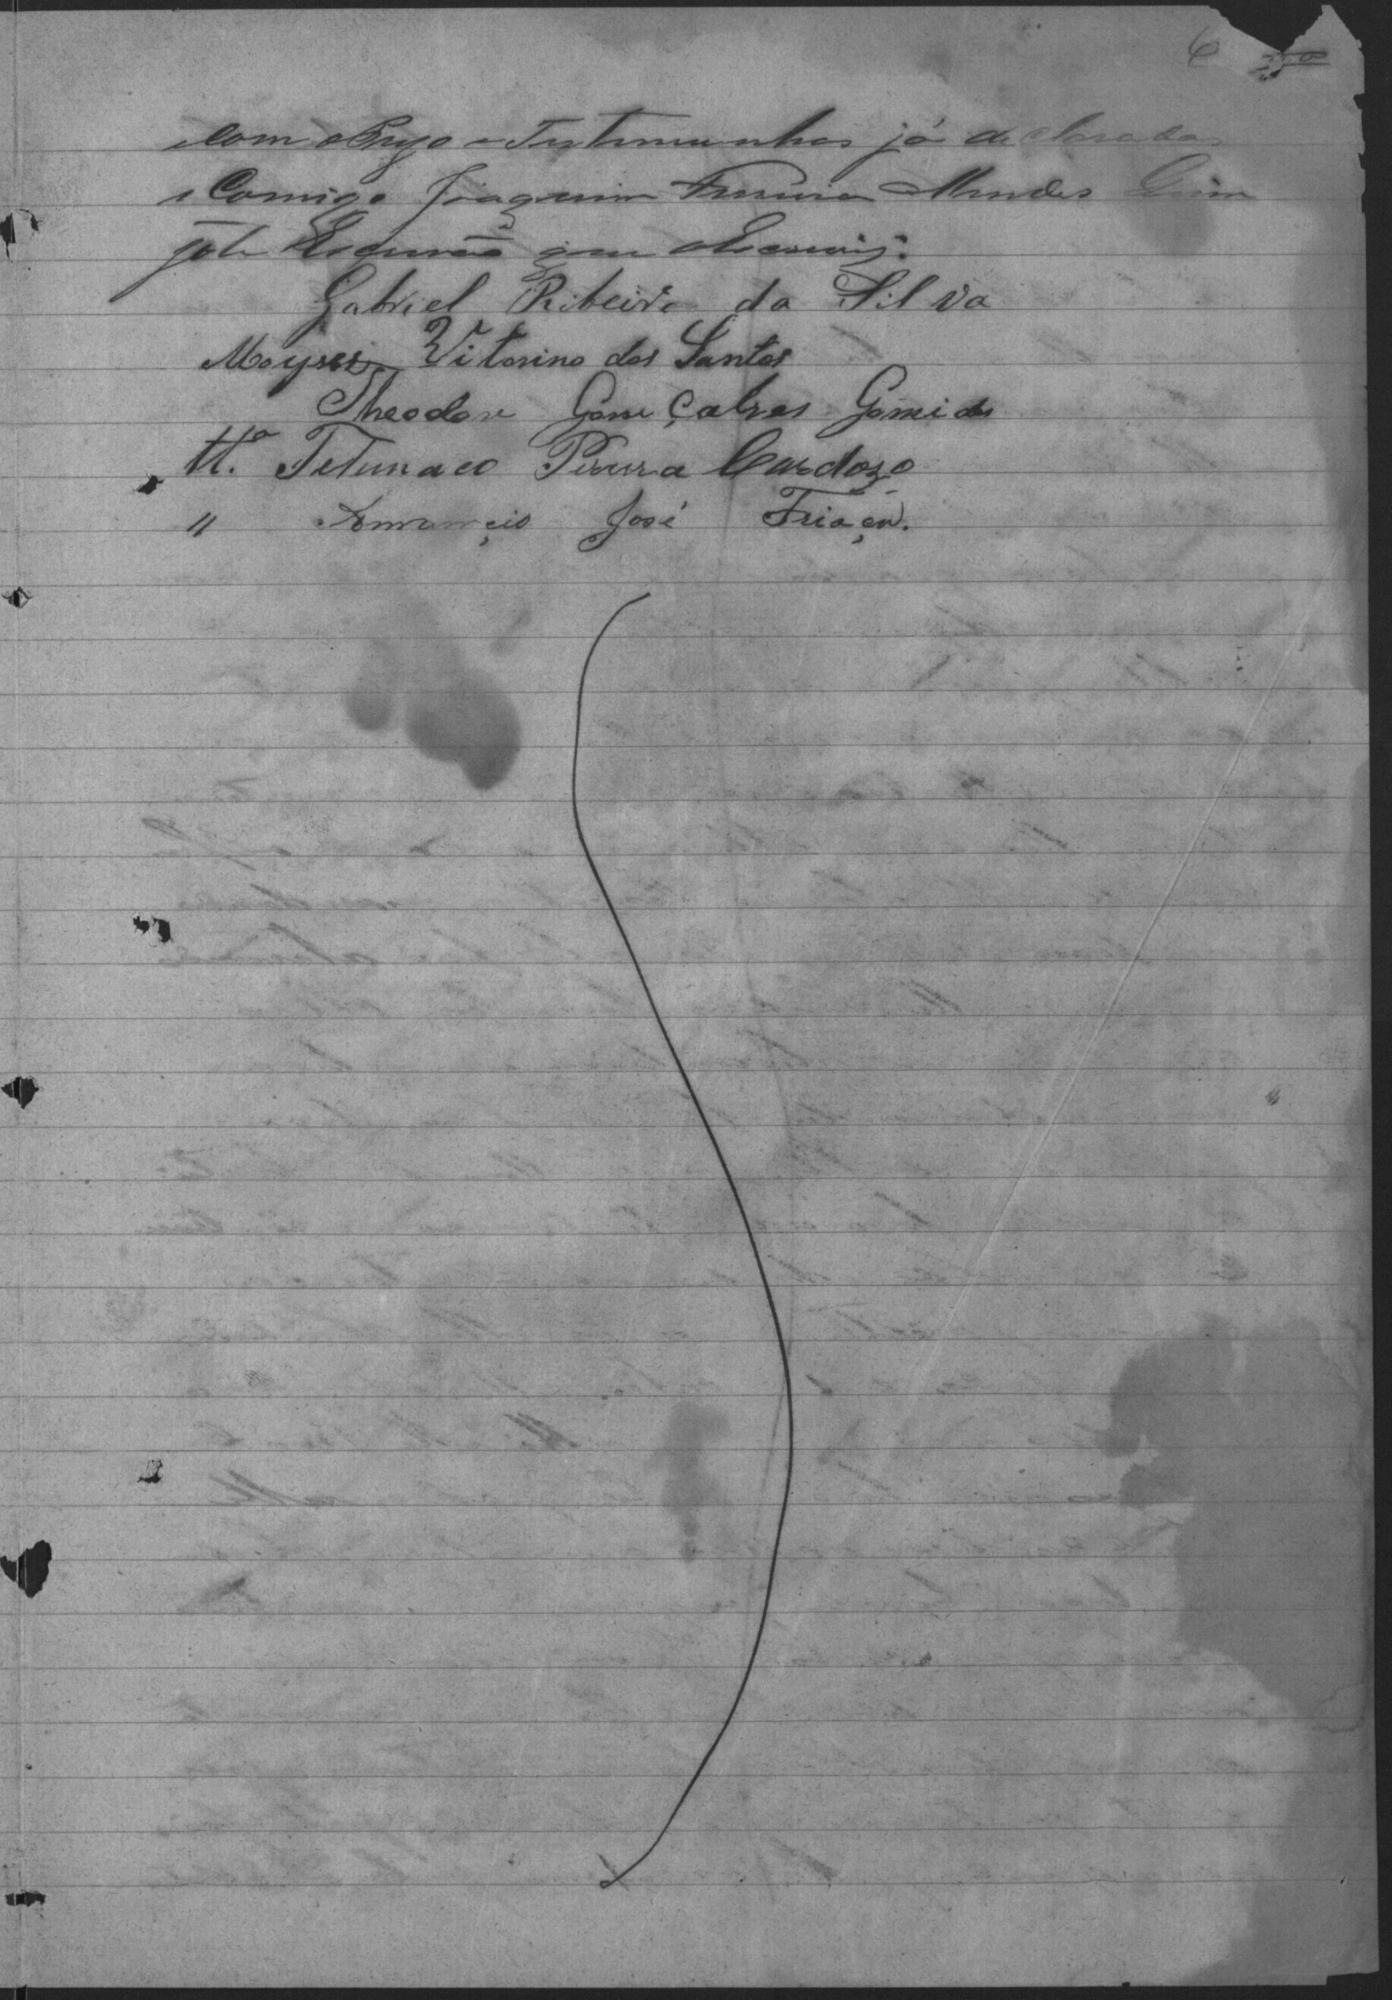 6
com o Bujo e Testemunhas já declaradas
e Comigo Joaquim Ferreira Mendes
Escrivão que o Escrevi.
Gabriel Ribeiro da Silva
Moyses Vitorino dos Santos
Theodoro Gonçalves Gomides
Tt.ª Pereira Cardozo
" Amancio José Friaça.